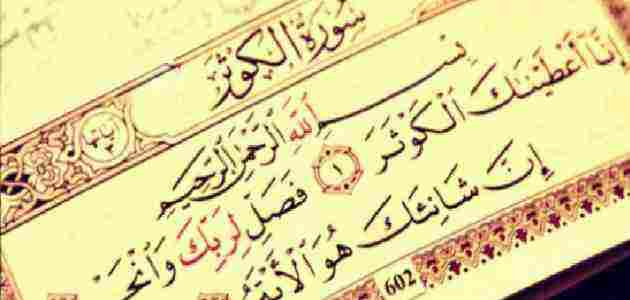 سُورَةُ الكَوْثَر
بِسْمِ اللَّهِ الرَّحْمَٰنِ الرَّحِيمِ
إِنَّا أَعْطَيْنَٰكَ الْكَوْثَرَ ١ فَصَلِّ لِرَبِّكَ وَانْحَرْ
إِنَّ شَانِئَكَ هُوَ الْأَبْتَرُ
602